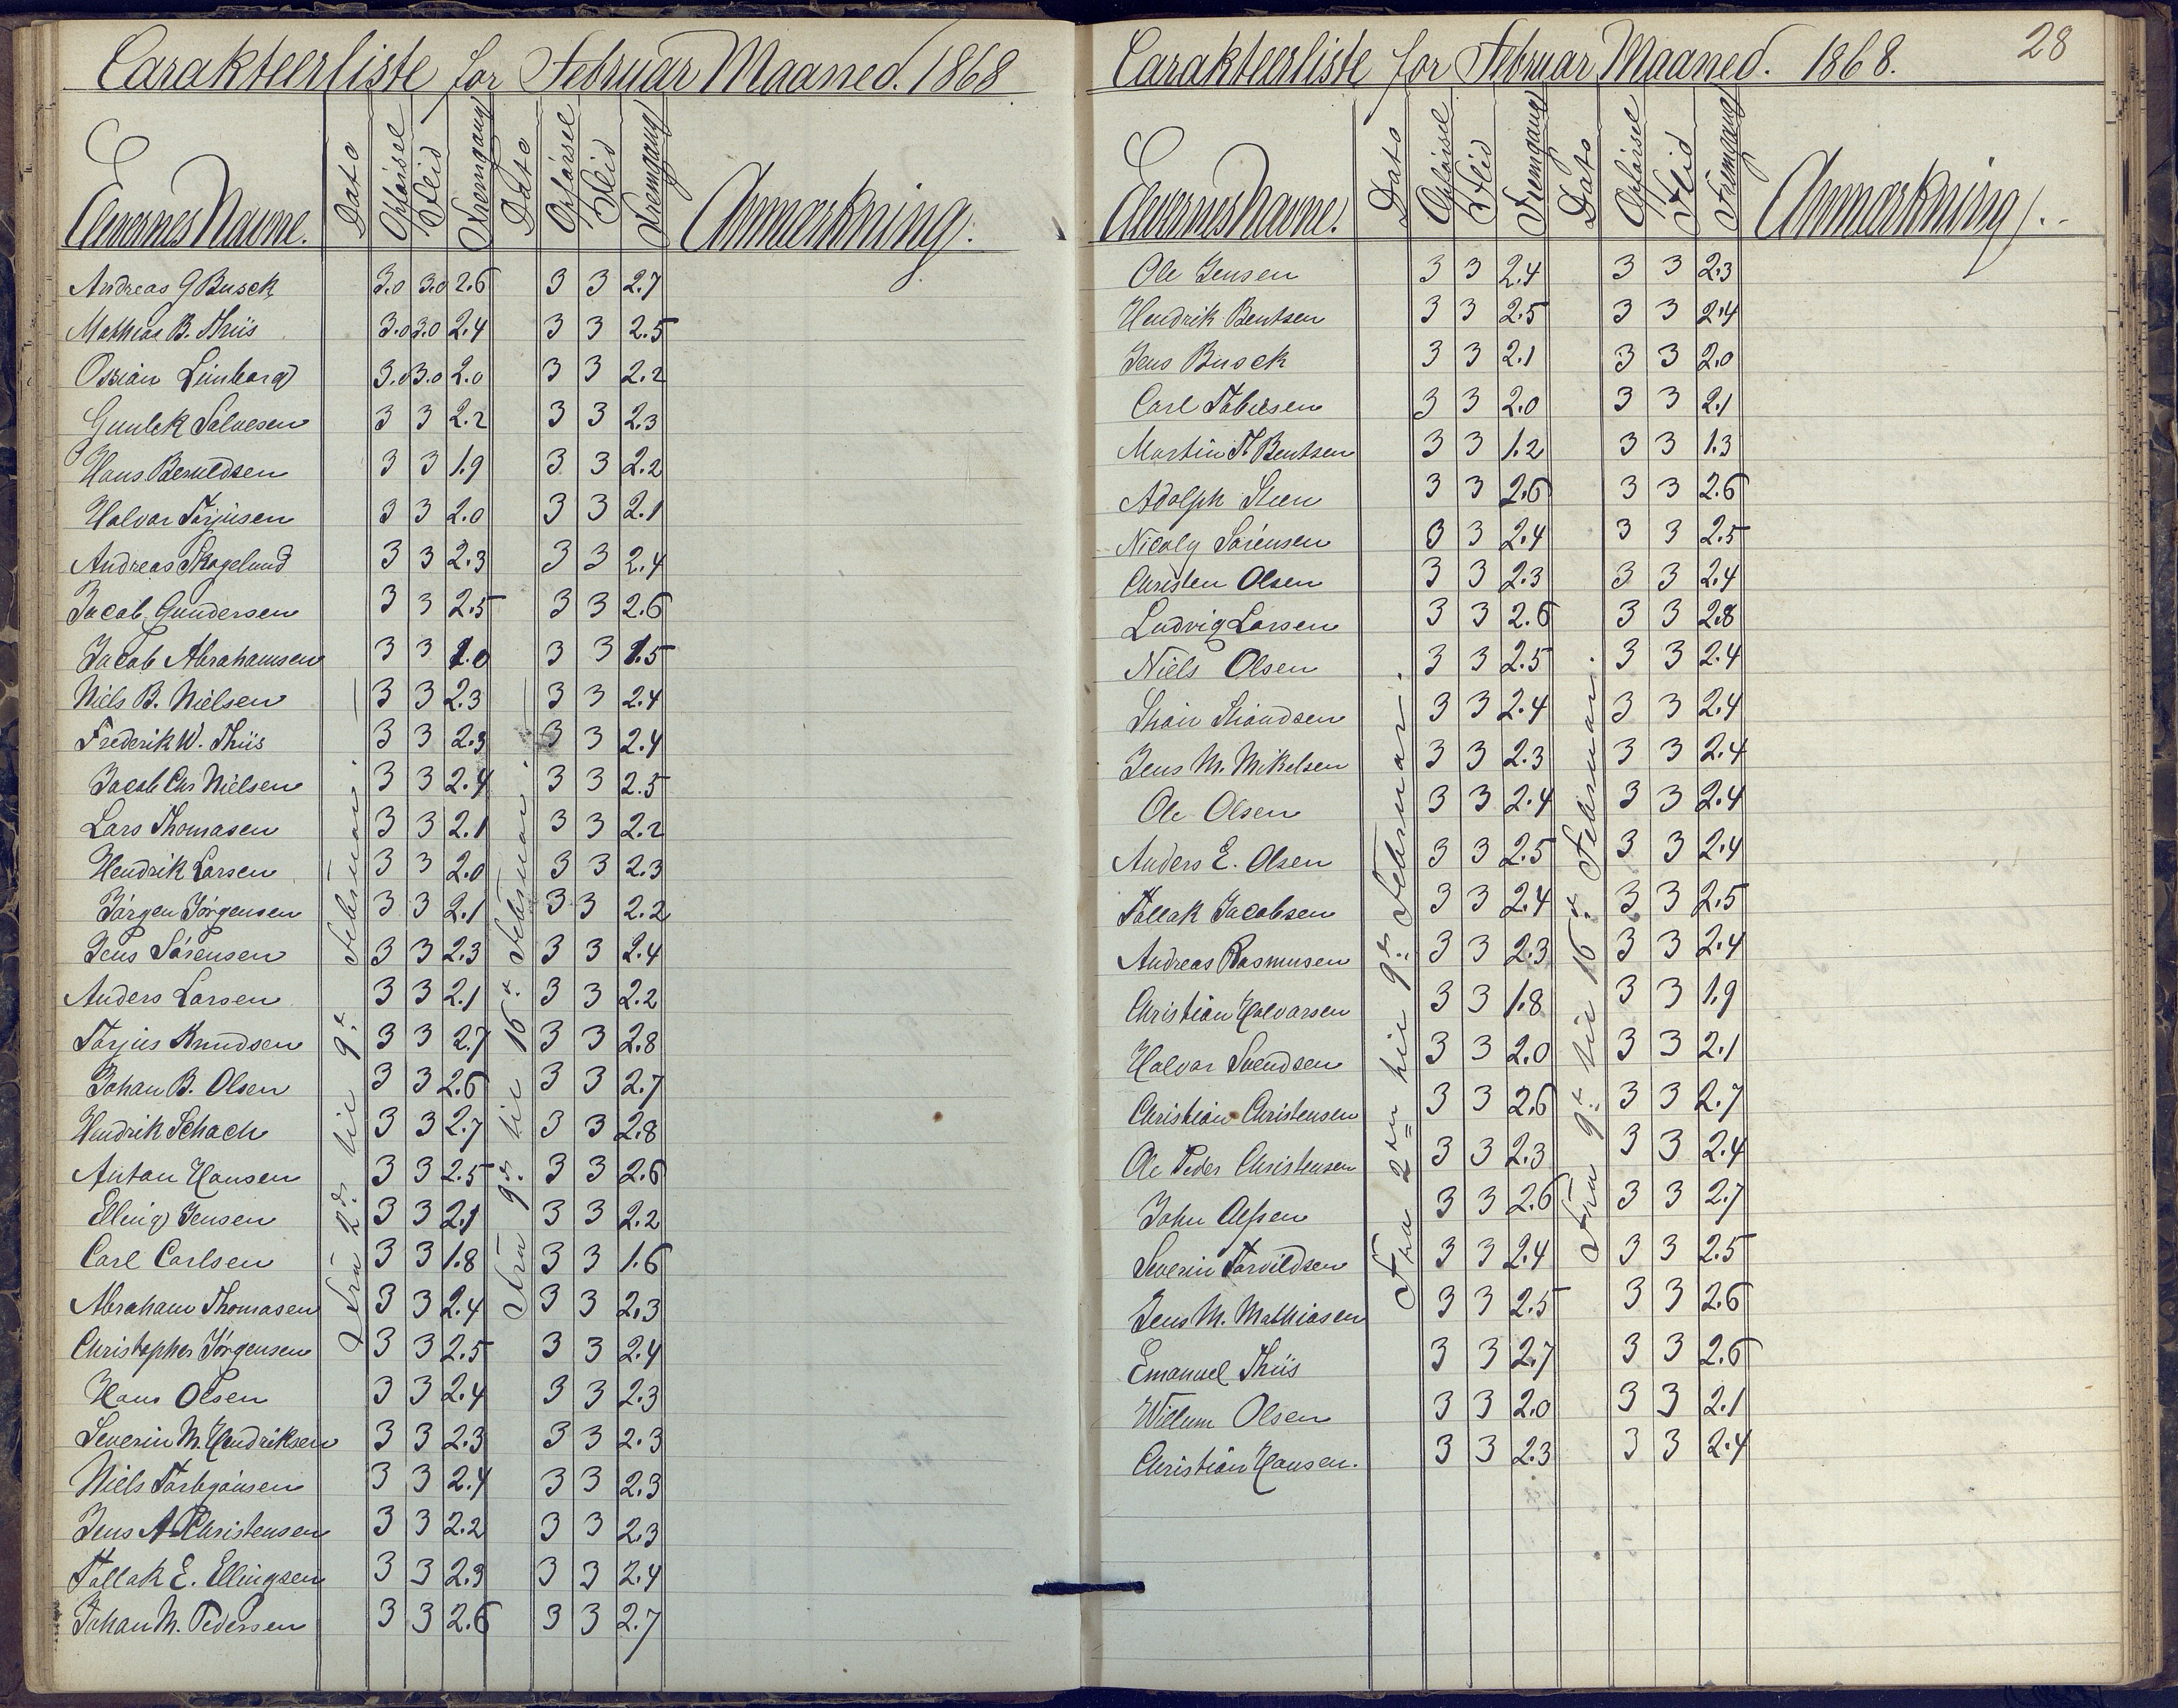 Carakteerliste for Februar Maaned. 1868
Elevernes Navne. Dato Opførsel Flid Fremgang Dato Opførsel Flid Fremgang Anmærkning.
Fra 2d til 9d Februar.
Fra 9d til 16d Februar.
Andreas G Busck 3.0 3.0 2.6 3 3 2.7
Mathias B. Thiis 3.0 3.0 2.4 3 3 2.5
Ossian Limborg 3.0 3.0 2.0 3 3 2.2
Gunlek Salvesen 3 3 2.2 3 3 2.3
Hans Berntdsen 3 3 1.9 3 3 2.2
Halvor Torjusen 3 3 2.0 3 3 2.1
Andreas Skogelund 3 3 2.3 3 3 2.4
Jacob Gundersen 3 3 2.5 3 3 2.6
Jacob Abrahamsen 3 3 1.0 3 3 1.5
Niels B. Nielsen 3 3 2.3 3 3 2.4
Frederik W. Thiis 3 3 2.3 3 3 2.4
Jacob Chr Nielsen 3 3 2.4 3 3 2.5
Lars Thomasen 3 3 2.1 3 3 2.2
Hendrik Larsen 3 3 2.0 3 3 2.3
Jörgen Jörgensen 3 3 2.1 3 3 2.2
Jens Sörensen 3 3 2.3 3 3 2.4
Anders Larsen 3 3 2.1 3 3 2.2
Torjus Knudsen 3 3 2.7 3 3 2.8
Johan B. Olsen 3 3 2.6 3 3 2.7
Hendrik Schach 3 3 2.7 3 3 2.8
Anton Hansen 3 3 2.5 3 3 2.6
Elling Jensen 3 3 2.1 3 3 2.2
Carl Carlsen 3 3 1.8 3 3 1.6
Abraham Thomasen 3 3 2.4 3 3 2.3
Christopher Jörgensen 3 3 2.5 3 3 2.4
Hans Olsen 3 3 2.4 3 3 2.3
Severin M. Hendriksen 3 3 2.3 3 3 2.3
Niels Torbjönsen 3 3 2.4 3 3 2.3
Jens A Christensen 3 3 2.2 3 3 2.3
Tallak E. Ellingsen 3 3 2.3 3 3 2.4
Johan M. Pedersen 3 3 2.6 3 3 2.7
Carakteerliste for Februar Maaned. 1868. 28
Elevernes Navne. Dato Opførsel Flid Fremgang Dato Opførsel Flid Fremgang Anmærkning.
Fra 2den til 9de Februar.
Fra 9d til 16d Februar.
Ole Jensen 3 3 2.4 3 3 2.3
Hendrik Bentsen 3 3 2.5 3 3 2.4
Jens Busck 3 3 2.1 3 3 2.0
Carl Tobiesen 3 3 2.0 3 3 2.1
Martin T. Bentsen 3 3 1.2 3 3 1.3
Adolph Steen 3 3 2.6 3 3 2.6
Nicoly Sörensen 3 3 2.4 3 3 2.5
Christen Olsen 3 3 2.3 3 3 2.4
Ludvig Larsen 3 3 2.6 3 3 2.8
Niels Olsen 3 3 2.5 3 3 2.4
3 3 2.4 3 3 2.4
Jens M. Mikelsen 3 3 2.3 3 3 2.4
Ole Olsen 3 3 2.4 3 3 2.4
Anders E. Olsen 3 3 2.5 3 3 2.4
Tallak Jacobsen 3 3 2.4 3 3 2.5
Andreas Rasmusen 3 3 2.3 3 3 2.4
Christian Halvorsen 3 3 1.8 3 3 1.9
Halvor Svendsen 3 3 2.0 3 3 2.1
Christian Christensen 3 3 2.6 3 3 2.7
Ole Peder Christensen 3 3 2.3 3 3 2.4
John 3 3 2.6 3 3 2.7
Severin Torvildsen 3 3 2.4 3 3 2.5
Jens M. Mathiasen 3 3 2.5 3 3 2.6
Emanuel Thiis 3 3 2.7 3 3 2.6
Willum Olsen 3 3 2.0 3 3 2.1
Christian Hansen. 3 3 2.3 3 3 2.4